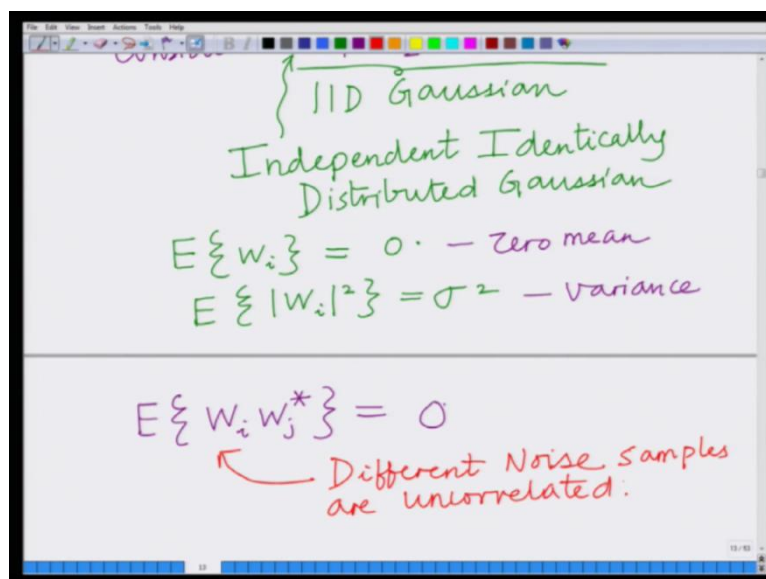 File Edit View Insert Actions Tools Help
B I
IID Gaussian
Independent Identically
Distributed Gaussian
E{W_i} = 0. — zero mean
E{|W_i|²} = σ² — variance
E{W_i W_j^*} = 0
Different Noise samples
are uncorrelated.
13/53
13